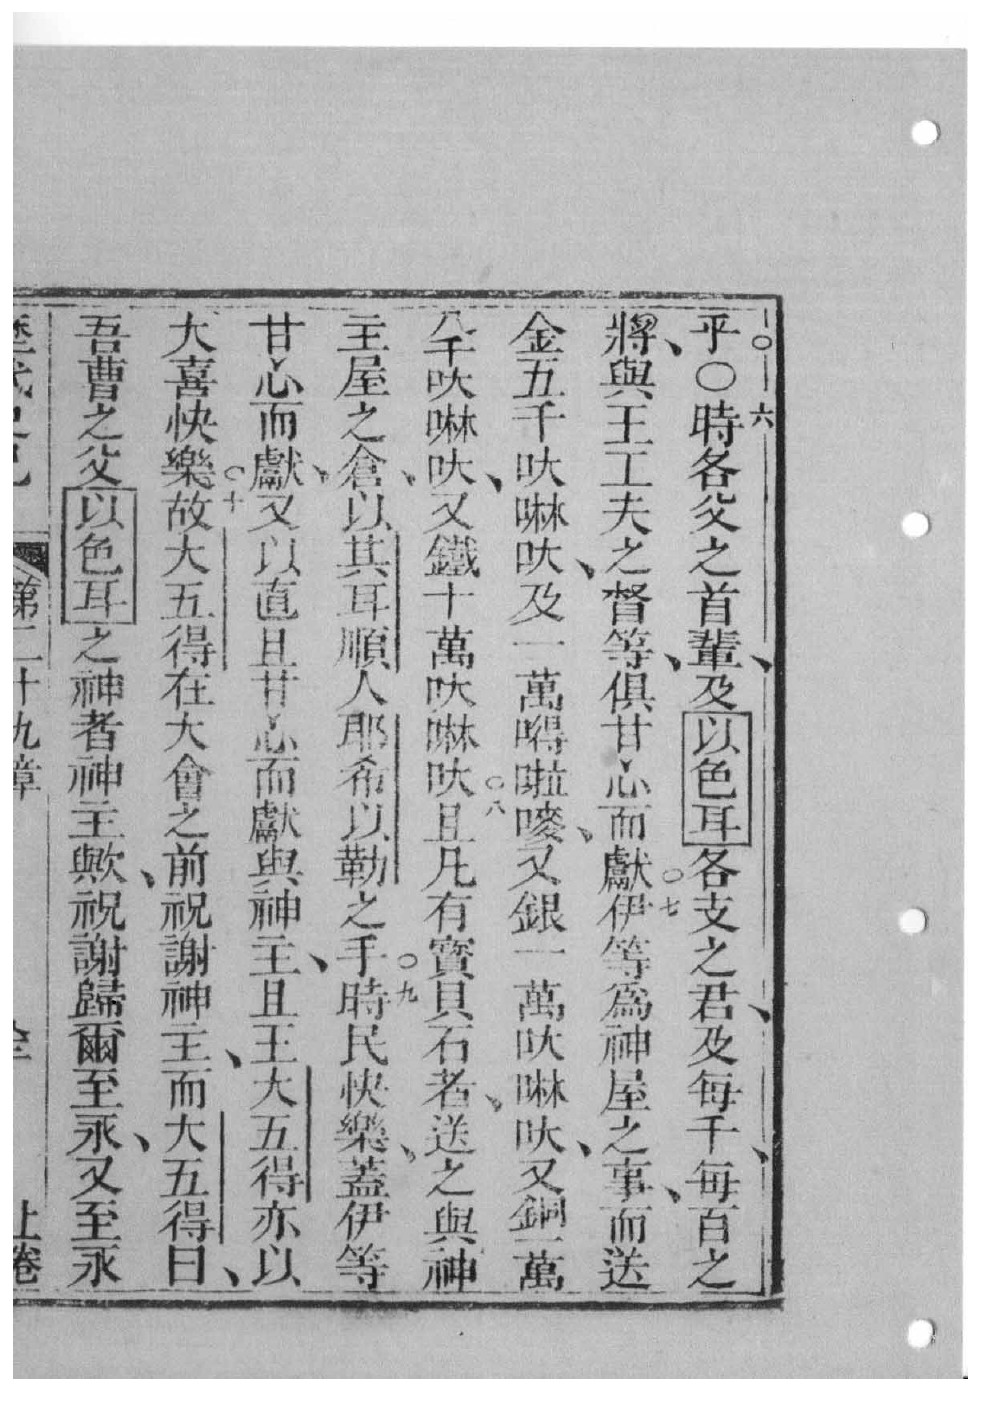 乎○時各父之首輩、及以色耳各支之君、及每千、每百之
六
將、與王工夫之督等、俱甘心而獻伊等爲神屋之事、而送
○七
金五千呔啉呔、及一萬㖀啦嘜、又銀一萬呔啉呔、又銅一萬
八千呔啉呔、又鐵十萬呔啉呔且凡有寶貝石者、送之與神
○八
主屋之倉、以其耳順人耶希以勒之手時民快樂、蓋伊等
○九
甘心而獻、又以直且甘心而獻與神主、且王大五得亦以
大喜快樂故大五得在大會之前祝謝神主、而大五得曰、
○十
吾曹之父以色耳之神者神主歟、祝謝歸爾至永、又至永
歷代史記 第二十九章 全 上卷